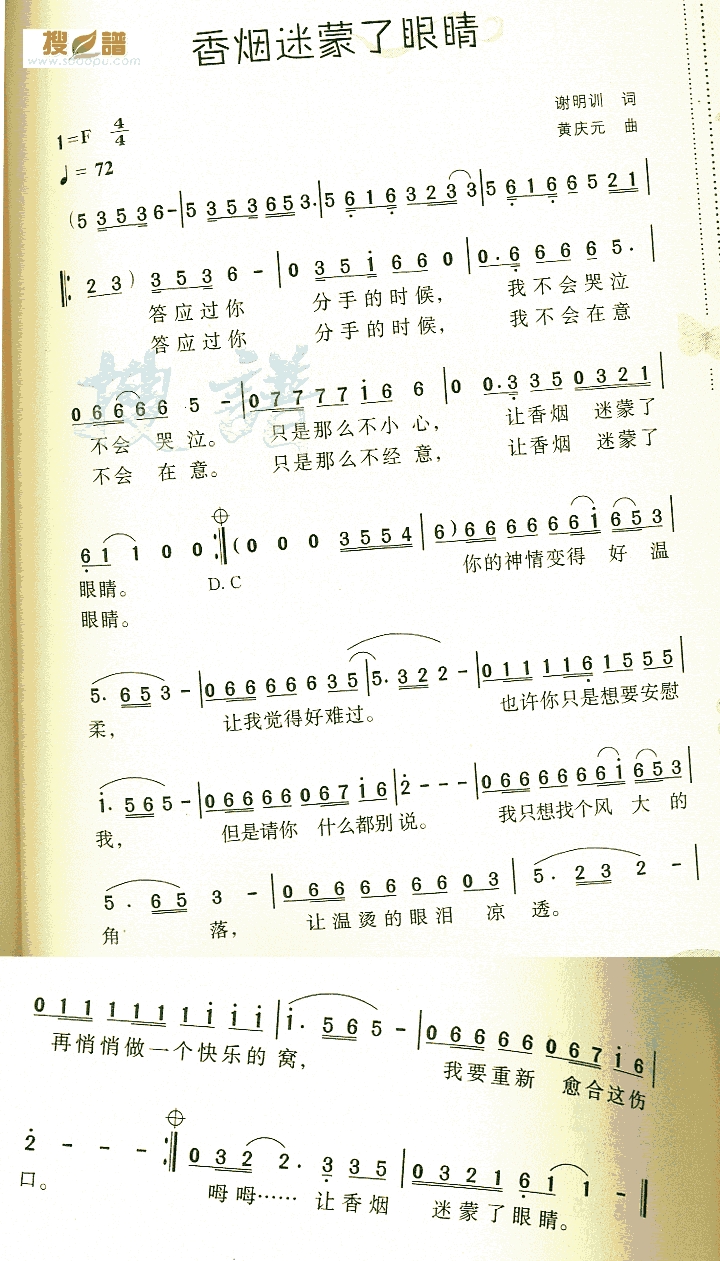 搜譜
www.sooopu.com
香烟迷蒙了眼睛
谢明训 词
黄庆元 曲
1=F 4/4
♩= 72
(5 3 5 3 6 - | 5 3 5 3 6 5 3. | 5 6 1 6 3 2 3 3 | 5 6 1 6 6 5 2 1 |
2 3 ) 3 5 3 6 - | 0 3 5 i 6 6 0 | 0. 6 6 6 6 5. |
答应过你 分手的时候, 我不会哭泣
答应过你 分手的时候, 我不会在意
搜譜
0 6 6 6 6 5 - | 0 7 7 7 7 i 6 6 | 0 0. 3 3 5 0 3 2 1 |
不会 哭 泣。 只是那么不小 心, 让香烟 迷蒙了
不会 在 意。 只是那么不经 意, 让香烟 迷蒙了
6 1 1 0 0 :| (0 0 0 3 5 5 4 | 6 ) 6 6 6 6 6 6 i 6 5 3 |
眼睛。 D.C 你的神情变得 好 温
眼睛。
5. 6 5 3 - | 0 6 6 6 6 6 3 5 | 5. 3 2 2 - | 0 1 1 1 1 6 1 5 5 5 |
柔, 让我觉得好难过。 也许你只是想要安慰
i. 5 6 5 - | 0 6 6 6 6 0 6 7 i 6 | 2 - - - | 0 6 6 6 6 6 6 i 6 5 3 |
我, 但是请你 什么都别说。 我只想找个风 大 的
5. 6 5 3 - | 0 6 6 6 6 6 6 0 3 | 5. 2 3 2 - |
角 落, 让温烫的眼泪 凉 透。
0 1 1 1 1 1 1 i i i | i. 5 6 5 - | 0 6 6 6 6 0 6 7 i 6 |
再悄悄做一个快乐的 窝, 我要重新 愈合这伤
2 - - - :| 0 3 2 2. 3 3 5 | 0 3 2 1 6 1 1 - ‖
口。 呣呣…… 让香烟 迷蒙了眼睛。